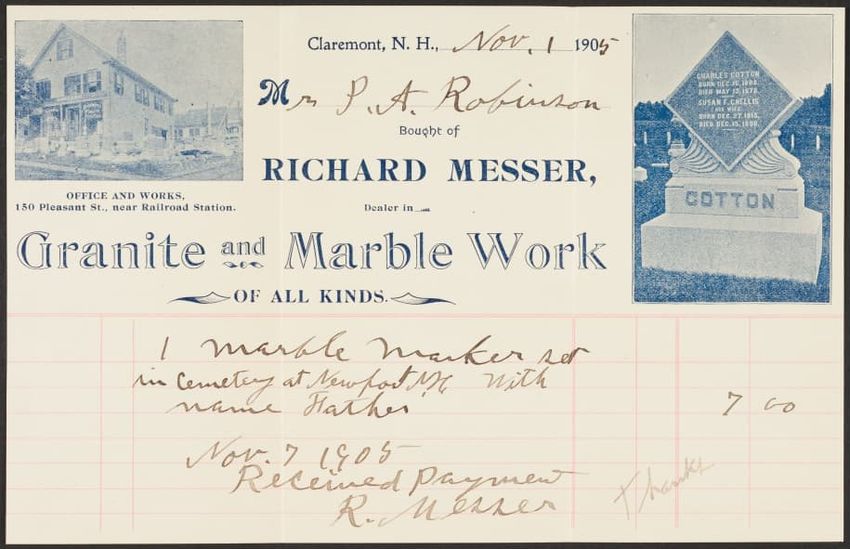 Claremont, N. H., Nov. 1 1905
Mr P. A. Robinson
Bought of
RICHARD MESSER,
Dealer in
Granite and Marble Work
OF ALL KINDS.
OFFICE AND WORKS,
150 Pleasant St., near Railroad Station.
CHARLES COTTON
BORN DEC.
DIED MAY 13, 1878.
SUSAN F. CHELLIS
HIS WIFE.
BORN DEC. 27, 1815.
DIED DEC. 15, 1890.
COTTON
1 marble marker set
in Cemetery at Newport NH with
name Father 7 00
Nov. 7 1905
Received Payment
R. Messer
Thanks